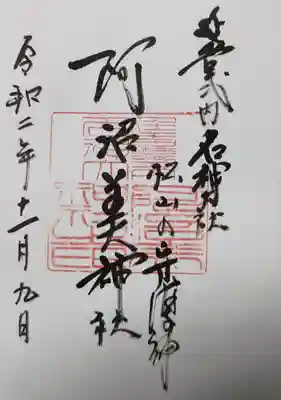 延喜式内名神社
松山の守護神
阿沼美神社
令和二年十一月九日